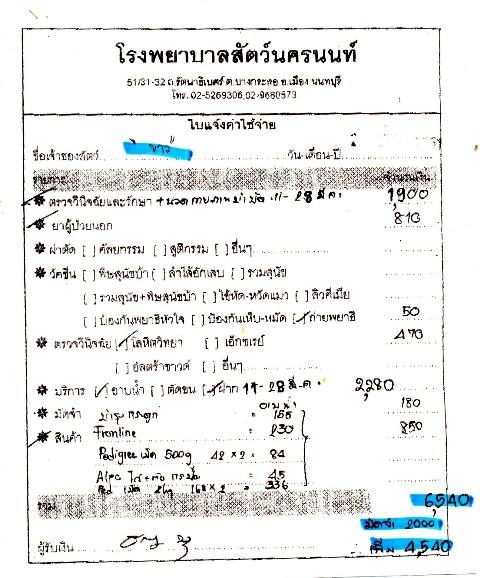 โรงพยาบาลสัตว์นครนนท์
51/31-32 ถ.รัตนาธิเบศร์ ต.บางกระสอ อ.เมือง นนทบุรี
โทร. 02-5269306,02-9680573
ใบแจ้งค่าใช้จ่าย
ชื่อเจ้าของสัตว์ วัน-เดือน-ปี
รายการ จำนวนเงิน
ตรวจวินิจฉัยและรักษา + นวด กายภาพบำบัด 11 - 28 มี.ค. 1,900
ยาผู้ป่วยนอก 810
ผ่าตัด [ ] ศัลยกรรม [ ] สูติกรรม [ ] อื่นๆ
วัคซีน [ ] พิษสุนัขบ้า [ ] ลำไส้อักเสบ [ ] รวมสุนัข
[ ] รวมสุนัข+พิษสุนัขบ้า [ ] ไข้หัด-หวัดแมว [ ] ลิวคีเมีย
[ ] ป้องกันพยาธิหัวใจ [ ] ป้องกันเห็บ-หมัด [/] ถ่ายพยาธิ 50
ตรวจวินิจฉัย [/] โลหิตวิทยา [ ] เอ็กซเรย์ 470
[ ] อัลตร้าซาวด์ [ ] อื่นๆ
บริการ [/] อาบน้ำ [ ] ตัดขน [/] ฝาก 11 - 28 มี.ค. 2,280
อาบน้ำ 180
มัดจำ บำรุงกระดูก = 155
สินค้า Fronline = 230 850
Pedigree เม็ด 500g 42 x 2 = 84
Alpo = 45
Ped เม็ด 2kg 168 x 2 = 336
รวม 6,540
มัดจำ 2000
ผู้รับเงิน เพิ่ม 4,540